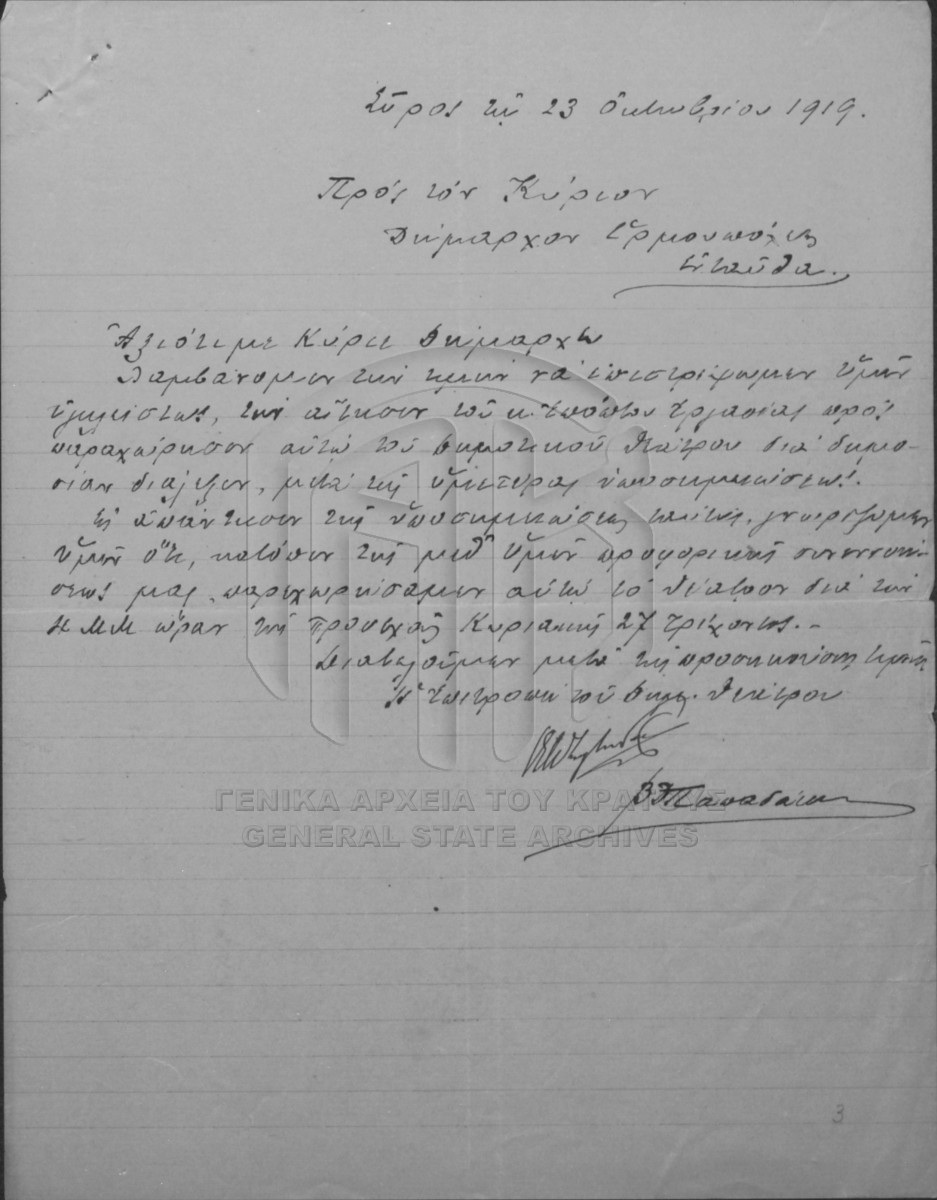 Σῦρος τῇ 23 Ὀκτωβρίου 1919.
Πρός τόν Κύριον
Δήμαρχον Ἑρμουπόλεως
Ἐνταῦθα.
Ἀξιότιμε Κύριε Δήμαρχε
Λαμβάνομεν τήν τιμήν νά ἐπιστρέψωμεν ὑμῖν
ἐγκλείστως, τήν αἴτησιν τοῦ κ. Ἐπόπτου Ἐργασίας πρός
παραχώρησιν αὐτῷ τοῦ Δημοτικοῦ Θεάτρου διά δημο-
σίαν διάλεξιν, μετά τῆς ὑμετέρας ὑποσημειώσεως.
Εἰς ἀπάντησιν τῆς ὑποσημειώσεως γνωρίζομεν
ὑμῖν ὅτι, κατόπιν τῆς μεθ' ὑμῶν προφορικῆς συνεννοή-
σεώς μας, παρεχωρήσαμεν αὐτῷ τό Θέατρον διά τήν
4 ΜΜ ὥραν τῆς προσεχοῦς Κυριακῆς 27 τρέχοντος.-
Διατελοῦμεν μετά τῆς προσηκούσης τιμῆς
Ἡ Ἐπιτροπή τοῦ Δημ. Θεάτρου
Παπαδάκης
ΓΕΝΙΚΑ ΑΡΧΕΙΑ ΤΟΥ ΚΡΑΤΟΥΣ
GENERAL STATE ARCHIVES
3